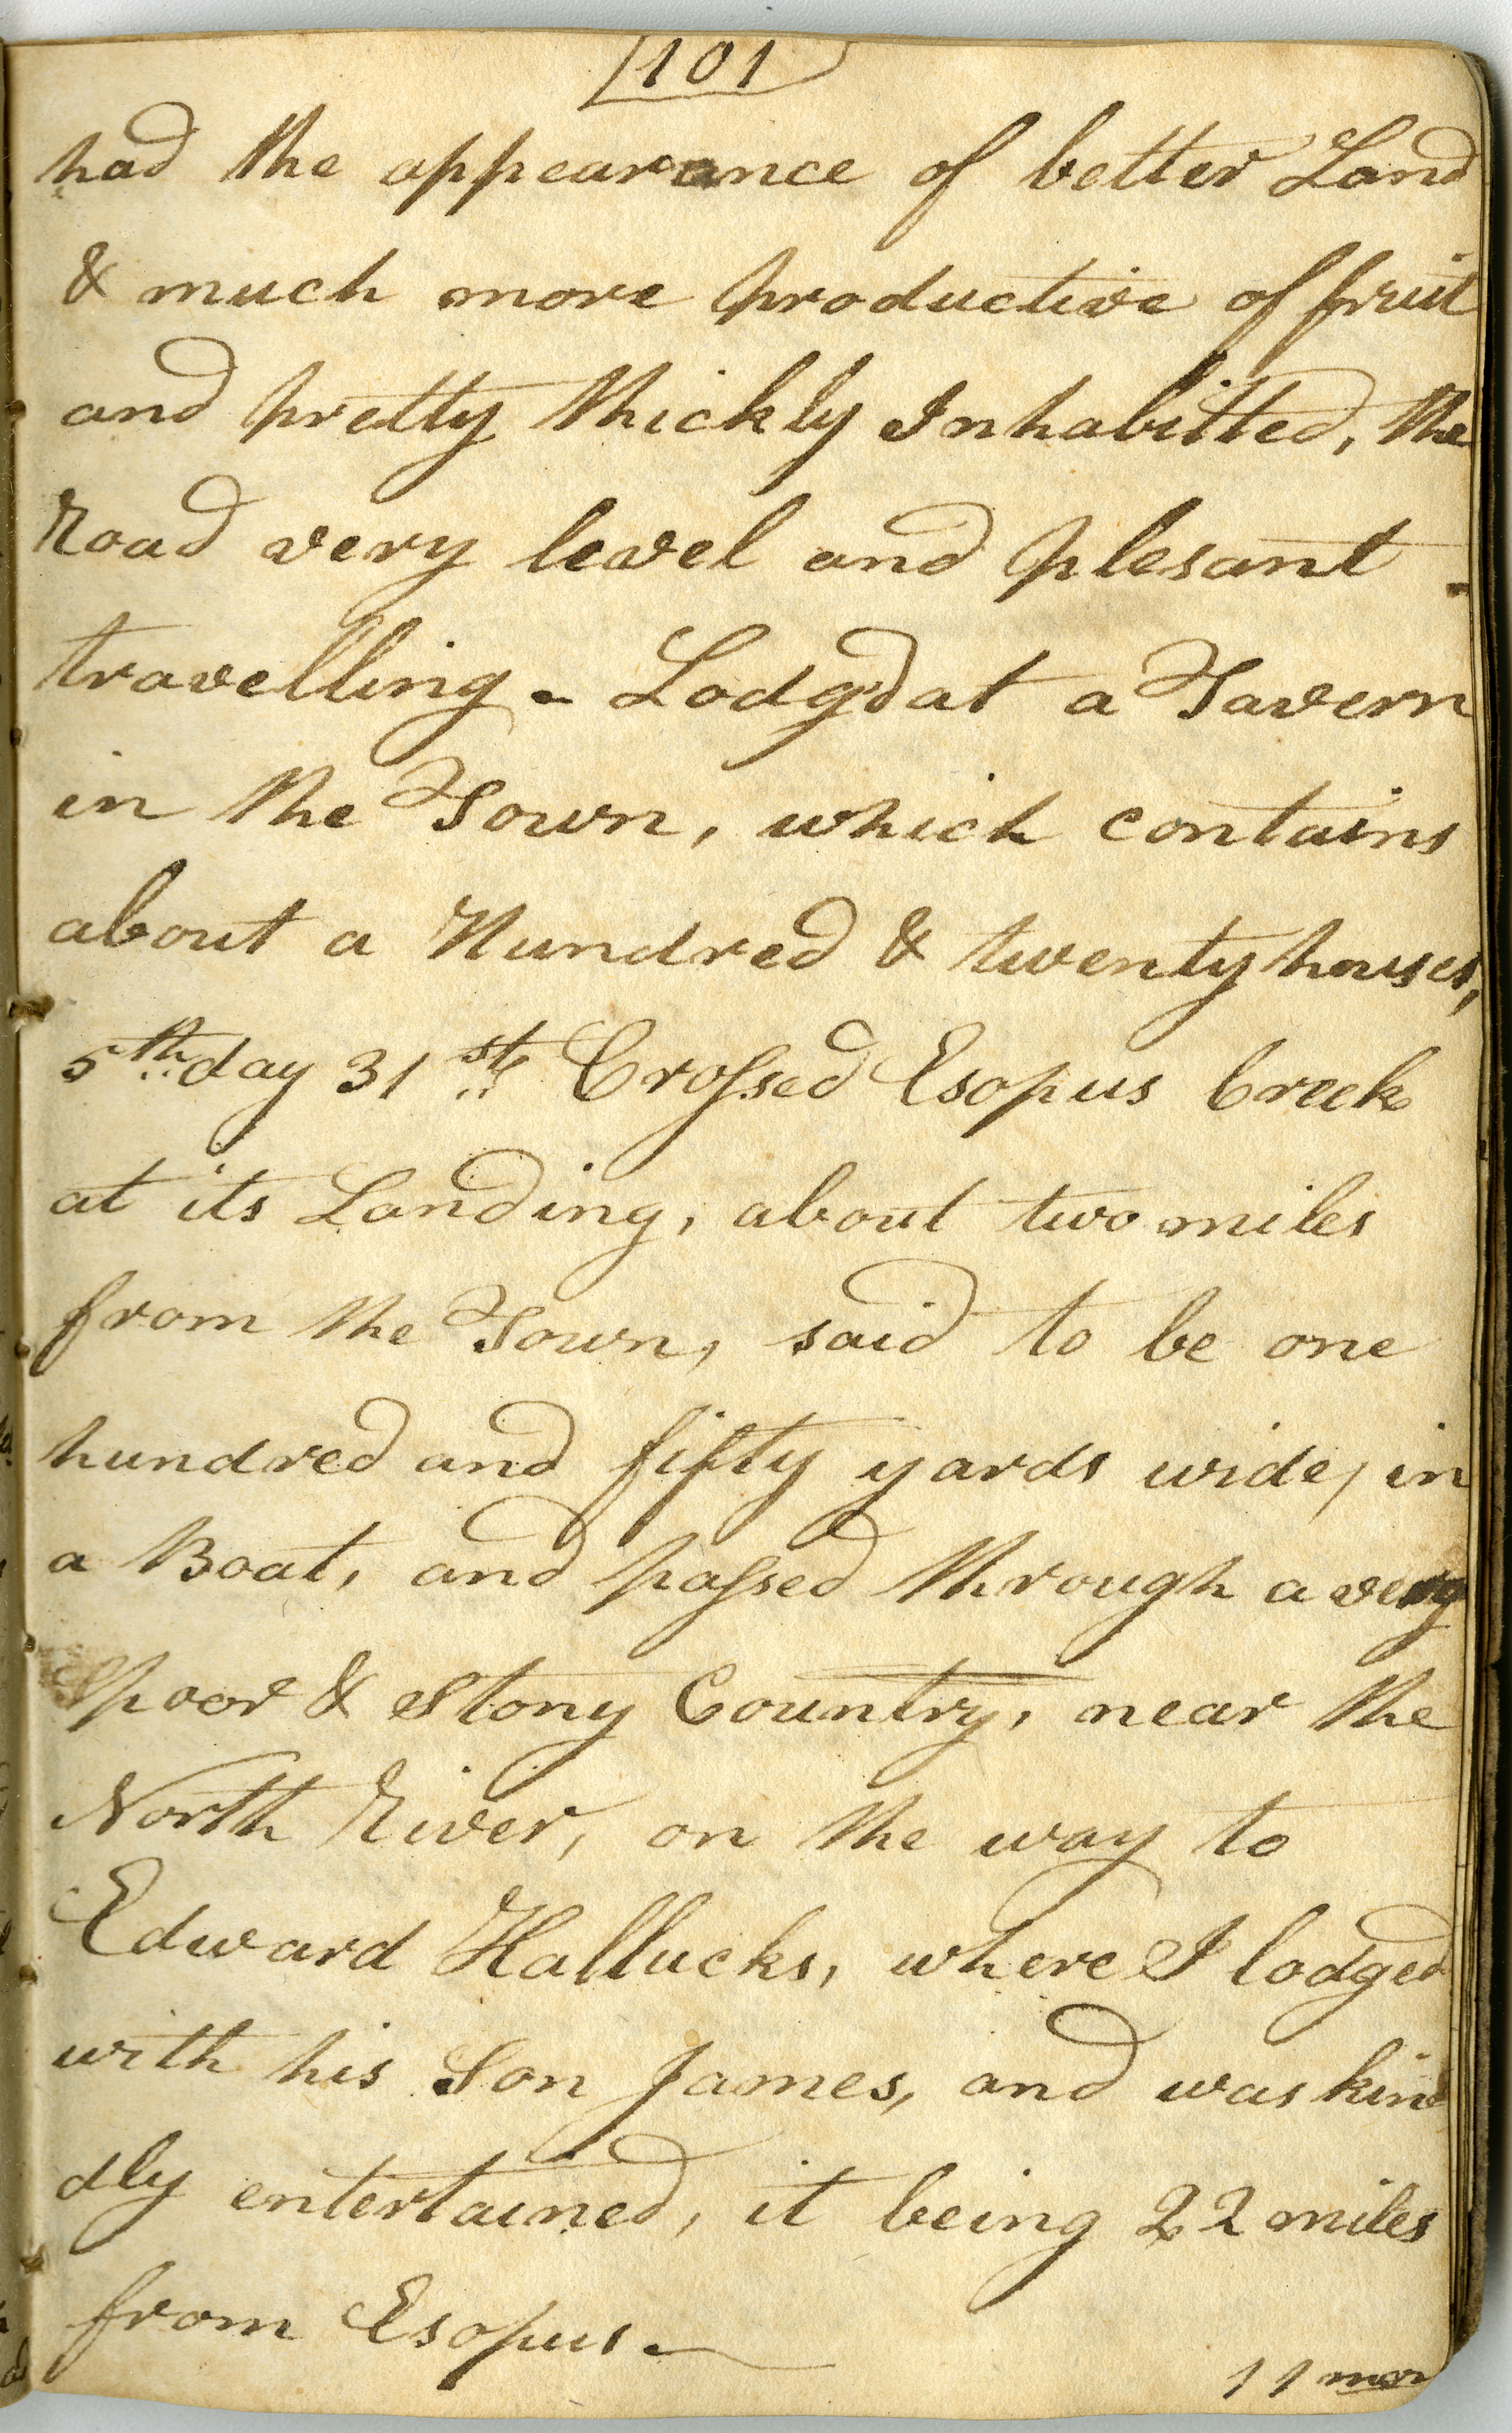 101
had the appearance of better Land
& much more productive of fruit
and pretty thickly Inhabitted, the
Road very level and plesant
travelling - Lodg'd at a Tavern
in the Town, which contains
about a Hundred & twenty houses,
5th day 31st Crossed Esopus Creek
at its Landing, about two miles
from the Town, said to be one
hundred and fifty yards wide, in
a Boat, and passed through a very
poor & Stony Country, near the
North River, on the way to
Edward Hallucks, where I lodged
with his Son James, and was kin
dly entertained, it being 22 miles
from Esopus -
11 mon